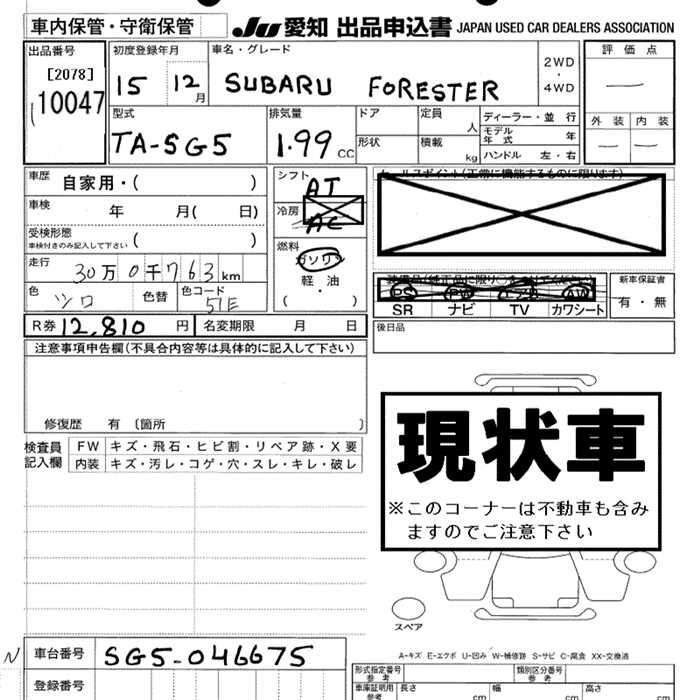 車内保管・守衛保管 JU 愛知 出品申込書 JAPAN USED CAR DEALERS ASSOCIATION
出品番号 初度登録年月 車名・グレード 2WD ・ 4WD 評価点
[2078] 10047 15 12月 SUBARU FORESTER
型式 排気量 ドア 定員 人 ディーラー・並行 外装 内装
TA-SG5 1.99 CC 形状 積載 kg モデル年式 年
ハンドル 左・右
車歴 自家用・( ) シフト AT セールスポイント(正常に機能するものに限ります)
車検 年 月( 日) 冷房 AC
受検形態 車検付きのみ記入して下さい ( ) 燃料 ガソリン
走行 30万0千763km 軽・油
色 シロ 色替 色コード 51E ・( )
装備品(純正品に限り○をつけてください) 新車保証書
PS PW エアB AW 有・無
SR ナビ TV カワシート
R券 12,810円 名変期限 月 日 後日品
注意事項申告欄(不具合内容等は具体的に記入して下さい)
修復歴 有 〔箇所 〕
検査員記入欄 FW キズ・飛石・ヒビ割・リペア跡・X要
内装 キズ・汚レ・コゲ・穴・スレ・キレ・破レ
現状車
※このコーナーは不動車も含み
ますのでご注意下さい
スペア
A-キズ E-エクボ U-凹み W-補修跡 S-サビ C-腐食 XX-交換済
N 車台番号 SG5-046675
登録番号
形式指定番号 参考 類別区分番号 参考
車庫証明用 参考 長さ cm 幅 cm 高さ cm